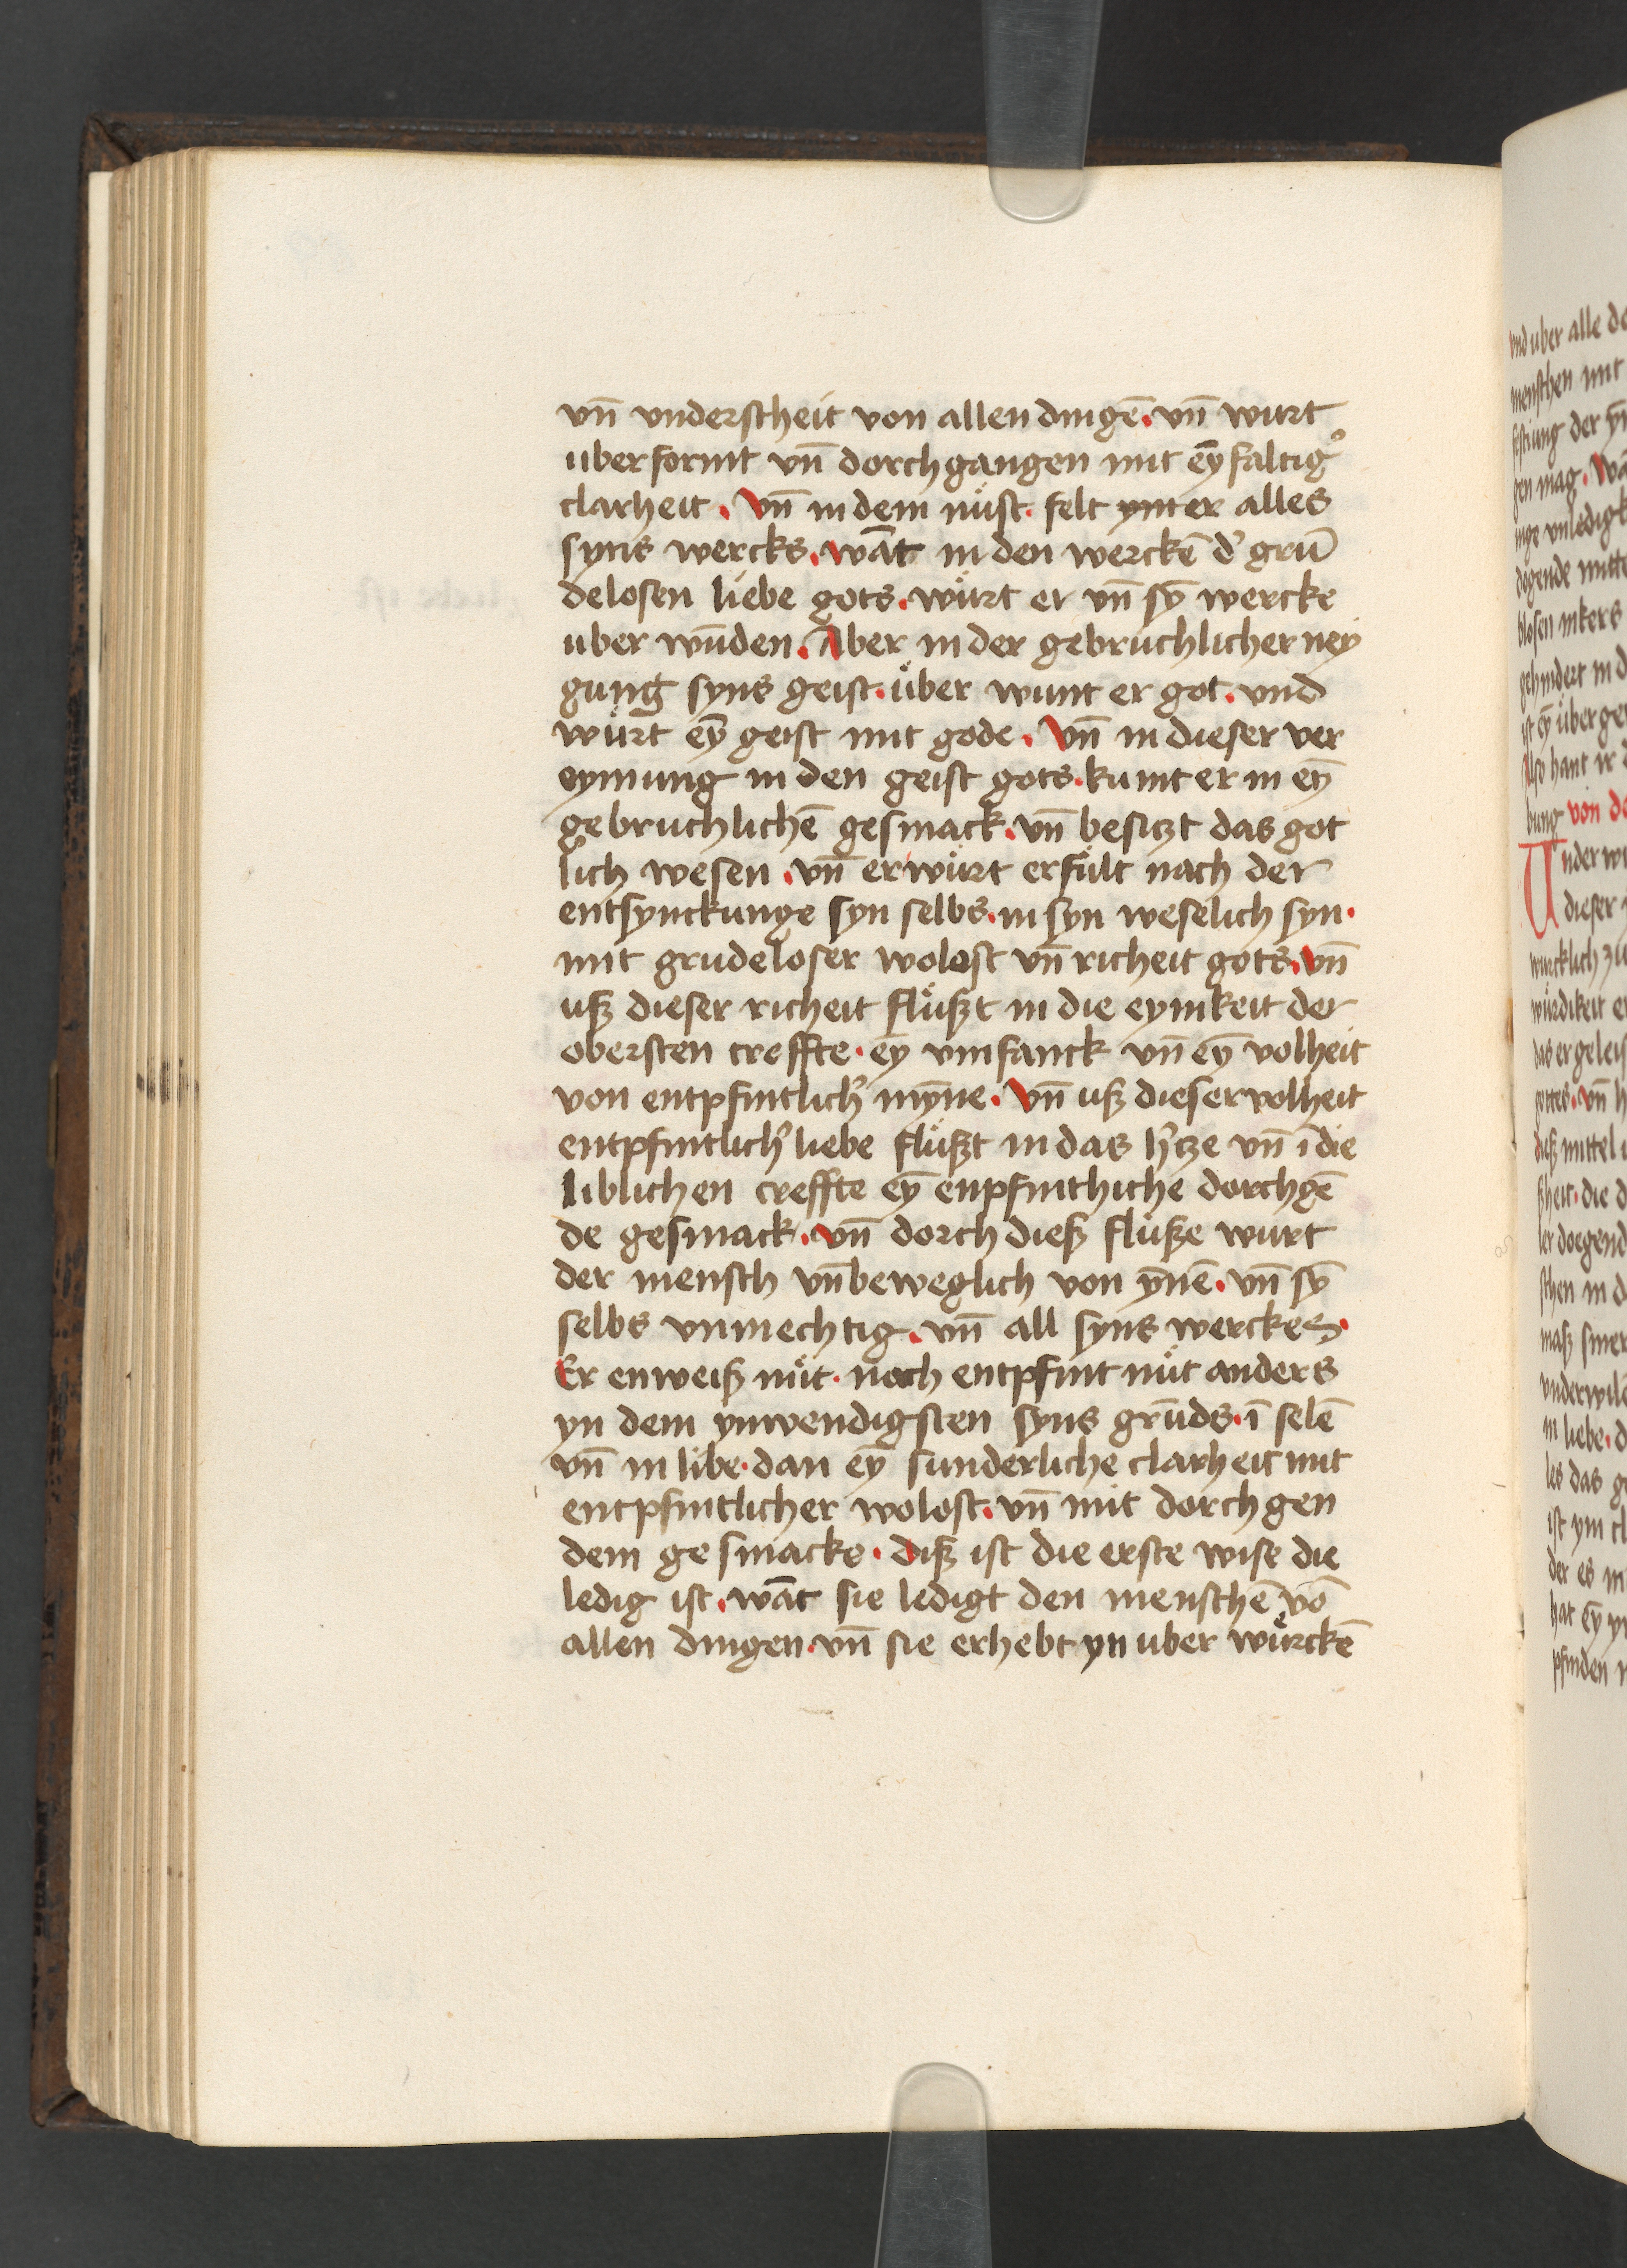 vn̄ vnderscheit von allen dingē. vn̄ wurt
uberformt vn̄ dorchgangen mit eȳfaltig᷎
clarheit. Vn̄ in dem nuͤst. felt ym er alles
syns wercks. wāt in den werckē d᷎ grū
delosen liebe gots. wuͤrt er vn̄ sȳ wercke
uber wūden. Aber in der gebruchlicher ney
gung syns geist. uͤber wint er got. vnd
wuͤrt eȳ geist mit gode. Vn̄ in dieser ver
eynung in den geist gots. kumt er in eȳ
gebruchlichē gesmack. vn̄ besitzt das got
lich wesen. vn̄ er wuͤrt erfuͤlt nach der
entsynckunge syn selbs. in syn weselich syn.
mit grudeloser wolost vn̄ richeit gots. vn̄
uß dieser richeit fluͤßt in die eynikeit der
obersten creffte. ey vmfanck vn̄ eȳ volheit
von entpfintlich᷎ mȳne. Vn̄ uß dieser volheit
entpfintlich᷎ liebe fluͤßt in das h᷎tze vn̄ ī die
liblichen creffte eȳ enpfinthiche dorchgē
de gesmack. vn̄ dorch dieß fluͤße wurt
der mensch vn̄beweglich von ȳnē. vn̄ sȳ
selbs vnmechtig. vn̄ all syns werckes.
Er enweiß nuͤt. noch entpfint nuͤt anders
yn dem ynwendigsten syns grūds. ī selē
vn̄ in libe. dan eȳ sunderliche clarheit mit
entpfintlicher wolost. vn̄ mit dorchgen
dem gesmacke. diß ist die erste wise die
ledig ist. wāt sie ledigt den menschē vō
allen dingen. vn̄ sie erhebt yn uber wuͤrckē
vnd uber alle
menschen mit
der
gen mag.
blosen
in
ist eȳ uͤber
hant ir
bung von
Under
dieser
wurcklich zu
wuͤrdikeit
das er
gottes. vn̄
dieß mittel
die
in
vnderwilē
in liebe.
les das
ist ym
der es
hat eȳ
pfinden